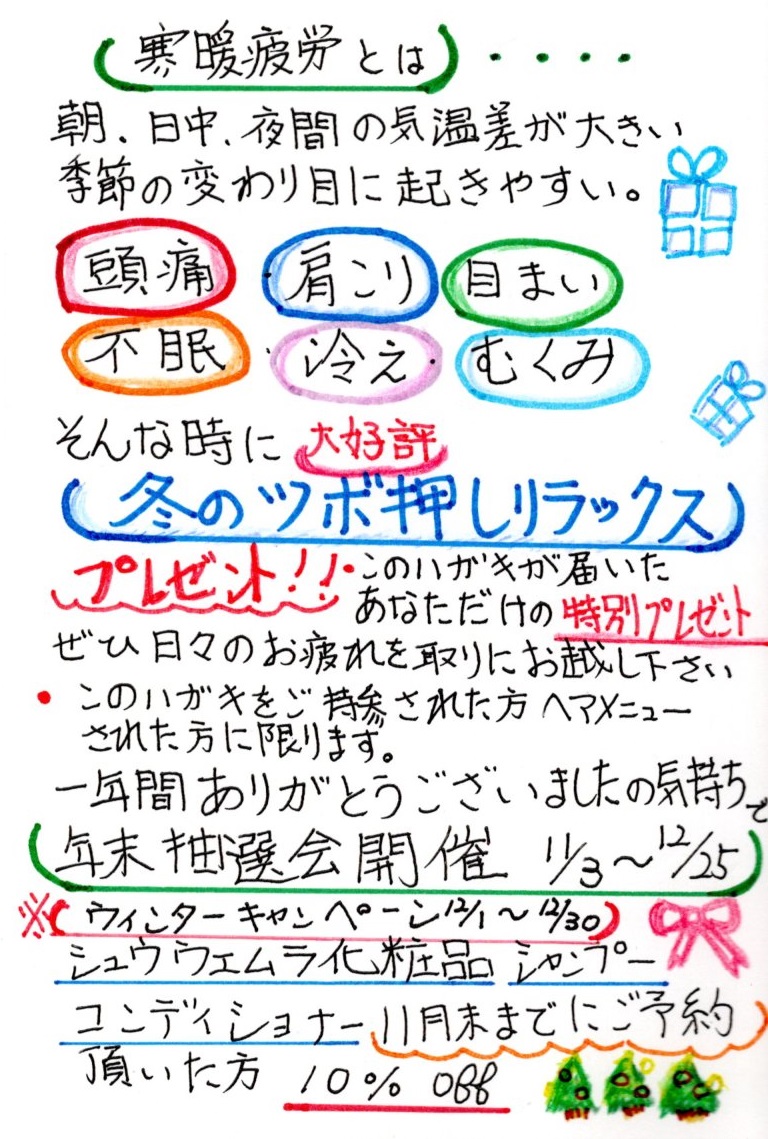 寒暖疲労とは ・・・・
朝、日中、夜間の気温差が大きい
季節の変わり目に起きやすい。
頭痛 肩こり 目まい
不眠 冷え むくみ
そんな時に 大好評
冬のツボ押しリラックス
プレゼント!! このハガキが届いた
あなただけの 特別プレゼント
ぜひ日々のお疲れを取りにお越し下さい
• このハガキをご持参された方 ヘアメニュー
された方に限ります。
一年間ありがとうございましたの気持ちで
年末抽選会開催 11/3〜12/25
※(ウィンターキャンペーン12/1〜12/30)
シュウウエムラ化粧品 シャンプー
コンディショナー 11月末までにご予約
頂いた方 10% OFF